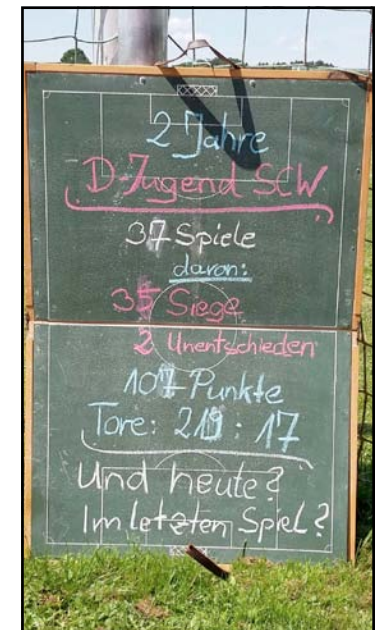 2 Jahre
D-Jugend SCW
37 Spiele
davon:
35 Siege
2 Unentschieden
107 Punkte
Tore: : 17
Und heute?
Im letzten Spiel?